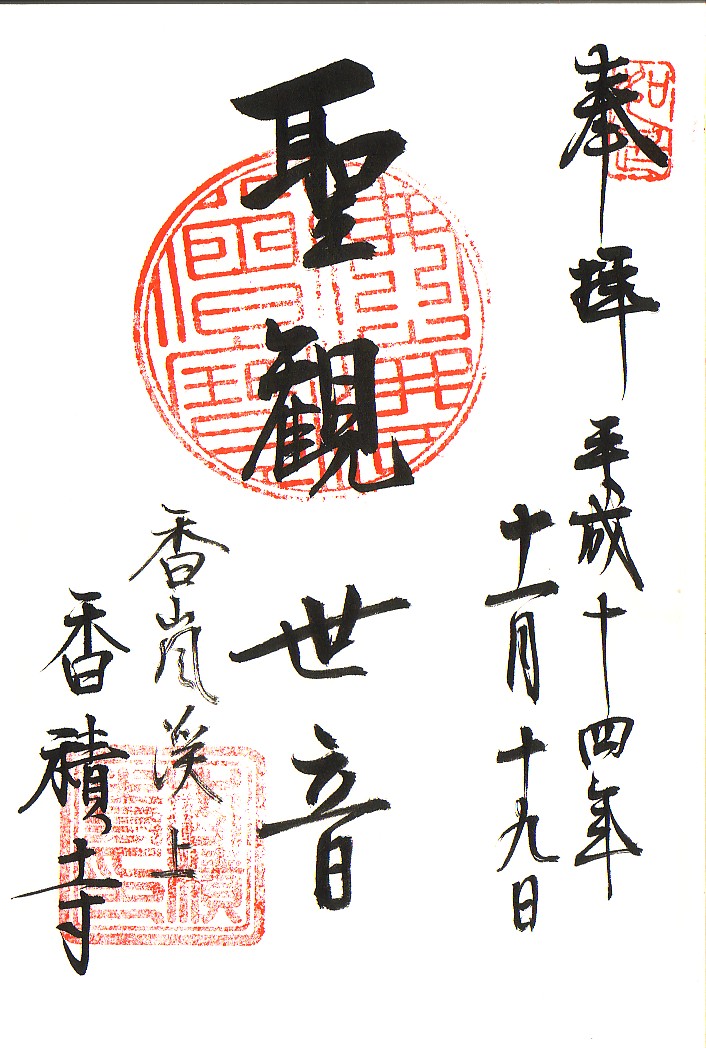 奉拝 平成十四年
十一月十九日
聖観世音
香嵐渓上
香積寺